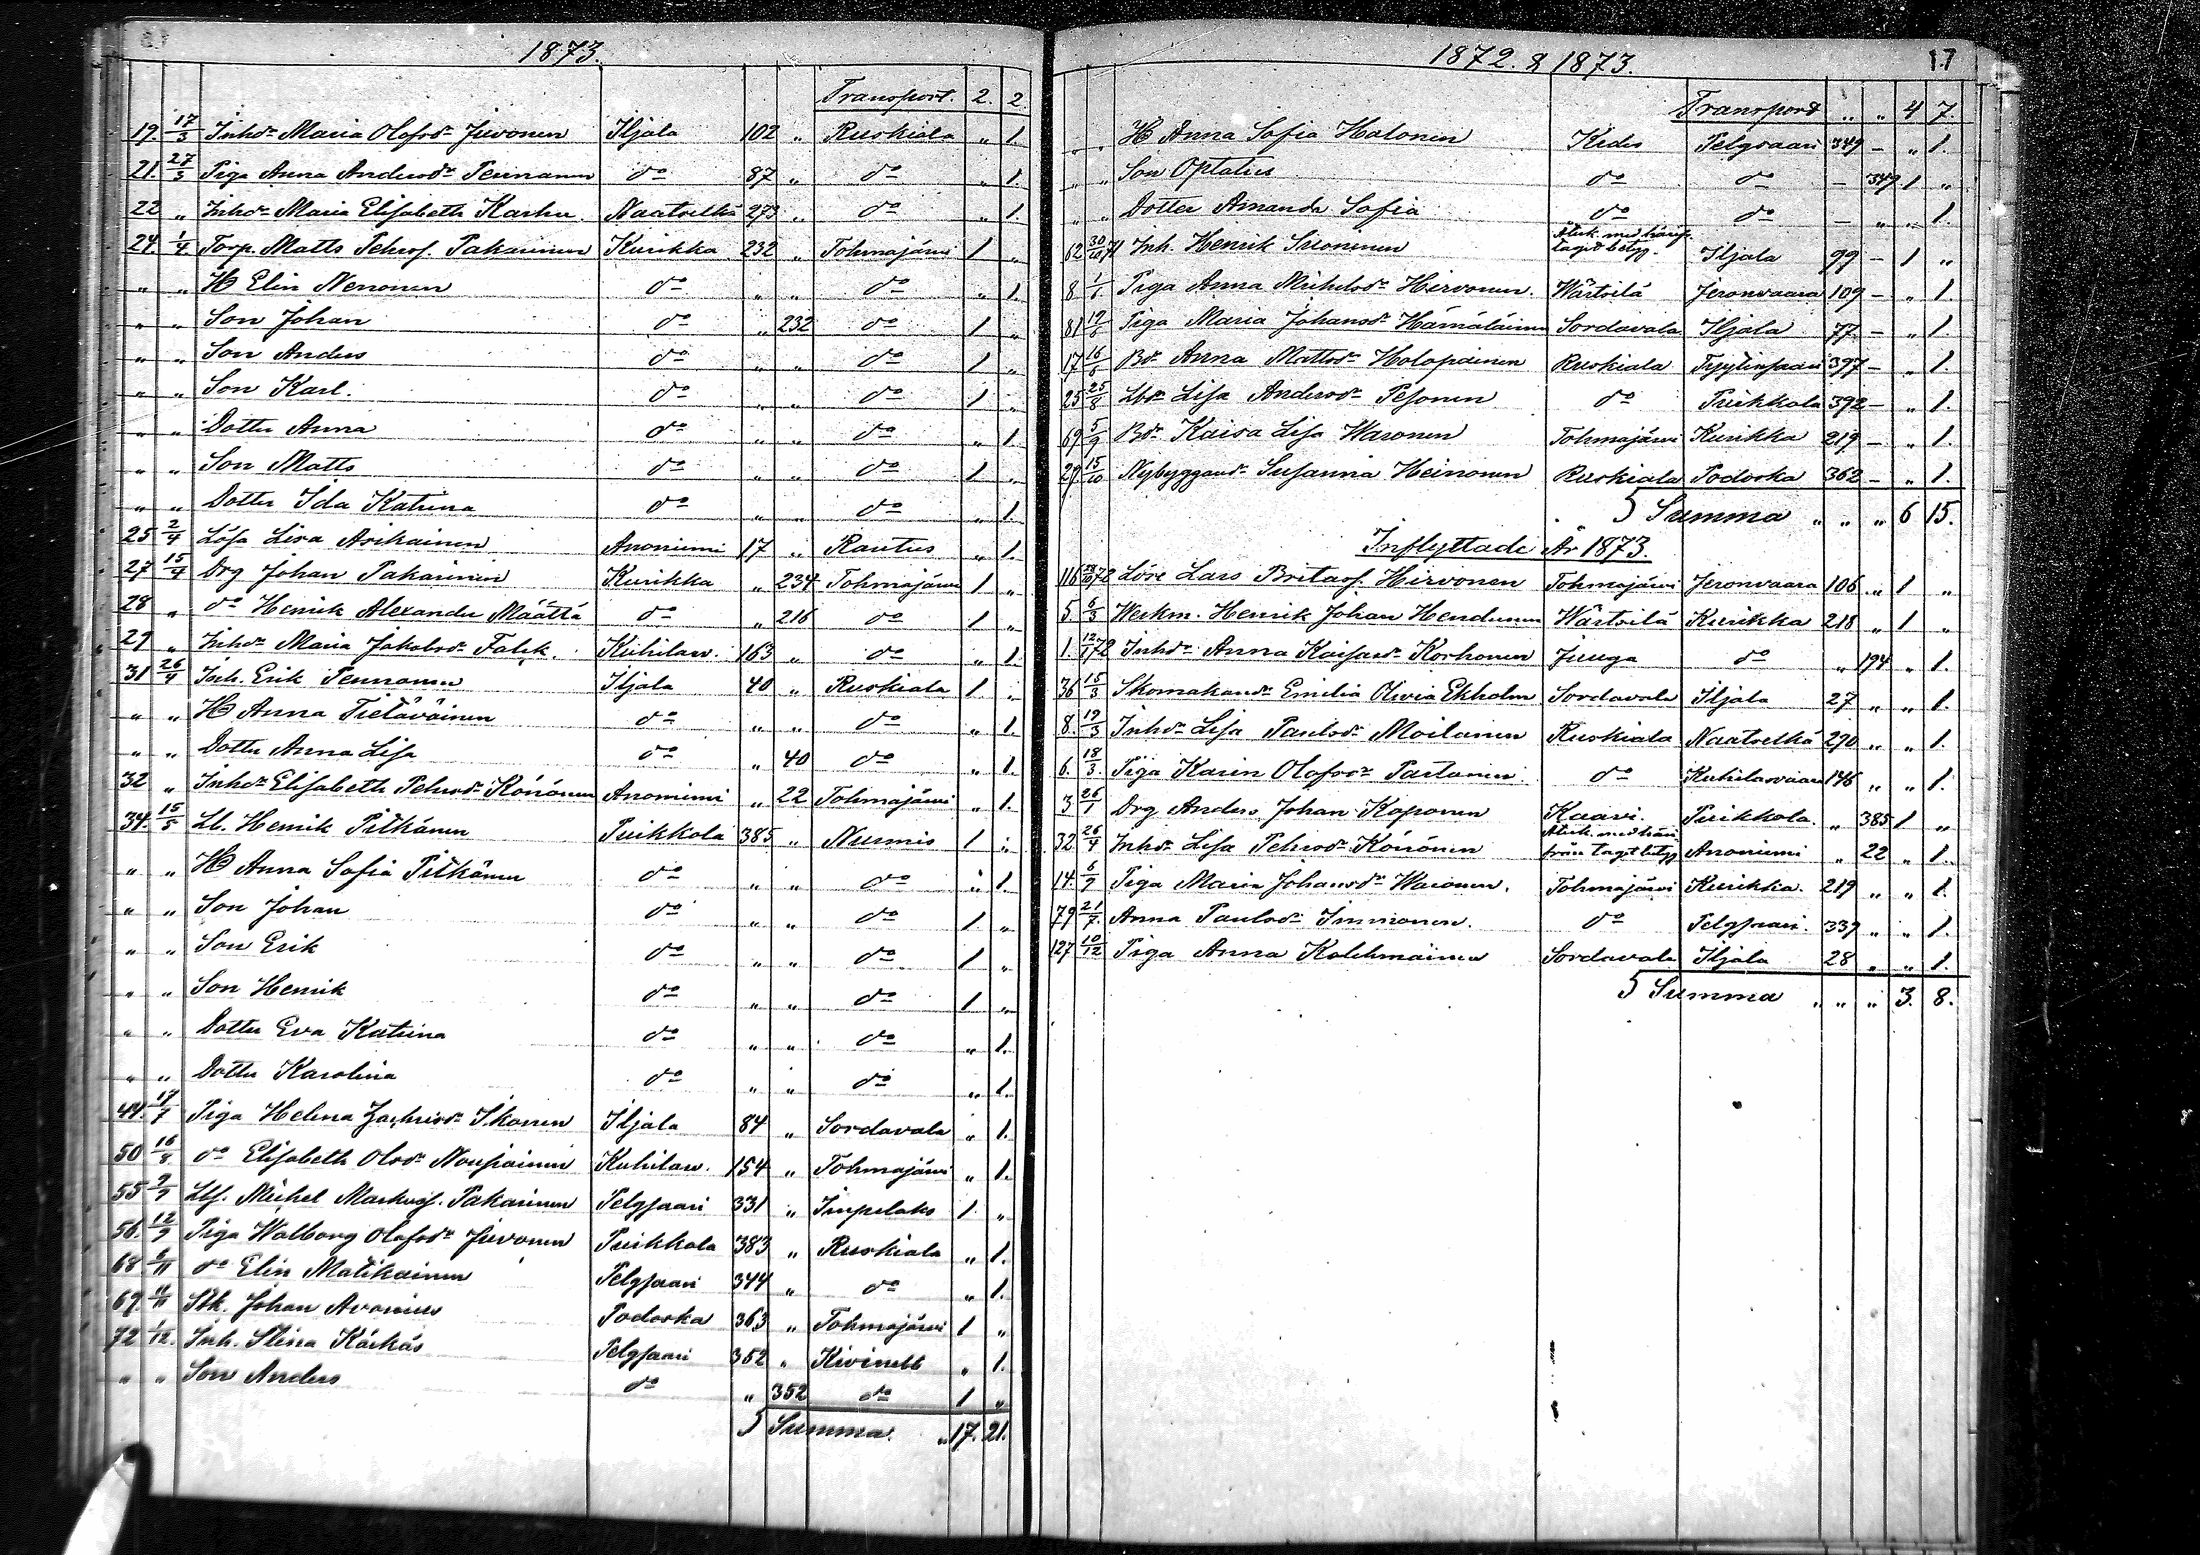 1873.
Transport. 2. 2.
19. 17/3 Inhda Maria Olofsdr Juvonen Iljala 102 " Ruskiala " 1.
21. 27/3 Piga Anna Andersdr Pennanen do 87 " do " 1.
22 " Inhda Maria Elisabeth Karhu Naatselkä 273 " do " 1.
24. 1/4. Torp. Matts Pehrss. Pakarinen Kurikka 232 " Tohmajärvi 1 "
" " H Elin Nenonen do " " do " 1.
" " Son Johan do " 232 do 1 "
" " Son Anders do " " do 1 "
" " Son Karl. do " " do 1 "
" " Dotter Anna do " " do " 1.
" " Son Matts do " " do 1 "
" " Dotter Ida Katrina do " " do " 1.
25 2/4 Lösa Lisa Asikainen Anoniemi 17 " Rautus " 1.
27 15/4 Drg Johan Pakarinen Kurikka " 234 Tohmajärvi 1 "
28 " do Henrik Alexander Määttä do " 216 do 1 "
29 " Inhda Maria Jakobsdr Falck. Kuhilav. 163 " do " 1.
31 26/4 Inh. Erik Pennanen Iljala 40 " Ruskiala 1. "
" " H Anna Tietäväinen do " " do " 1.
" " Dotter Anna Lisa do " 40 do " 1.
32 " Inhda Elisabeth Pehrsdr Könönen Anoniemi " 22 Tohmajärvi " 1.
34. 15/5 Lb. Henrik Pitkänen Puikkola 385 " Nurmis 1 "
" " H Anna Sofia Pitkänen do " " do " 1.
" " Son Johan do " " do 1 "
" " Son Erik do " " do 1 "
" " Son Henrik do " " do 1 "
" " Dotter Eva Katrina do " " do " 1.
" " Dotter Karolina do " " do " 1.
44. 17/7 Piga Helena Zachrisdr Ikonen Iljala 84 " Sordavala " 1.
50 16/8 do Elisabeth Olsdr Nousiainen Kuhilav. 154 " Tohmajärvi " 1.
55 9/9 Lbs. Michel Markuss. Pakarinen Pelgjaari 331 " Impilaks 1 "
56. 12/9 Piga Walborg Olofsdr Juvonen Puikkola 383 " Ruskiala " 1.
68. /11 do Elin Matikainen Pelgjaari 344 " do " 1.
69. /11 Johan Avonius Podorka 363 " Tohmajärvi 1 "
72 1/12. Inh. Stina Kärkäs Pelgjaari 352 " Kivinebb " 1.
" " Son Anders do " 352 do 1 "
Summa. " 17. 21.
1872. & 1873. 17
Transport " " 4 7.
" " H Anna Sofia Halonen Kides Pelgjaari 349 – " 1.
" " Son Optatus do do – 349 1 "
" " Dotter Amanda Sofia do do – " " 1.
62 30/10 71 Inh. Henrik Suoninen Åtek. med härifr. taget betyg. Iljala 99 – 1 "
8 1/1 Piga Anna Michelsdr Hirvonen. Wärtsilä Jeronvaara 109 – " 1.
81 12/ Piga Maria Johansdr Hämäläinen Sordavala Iljala 77 – " 1.
17 16/ Bda Anna Mattsdr Holopainen Ruskiala 397 – " 1.
25 25/8 Lbda Lisa Andersdr Pesonen do Puikkola 392 – " 1.
69 5/9 Bda Kaisa Lisa Waronen Tohmajärvi Kurikka 219 – " 1.
27 15/10 Nybyggareda Susanna Heinonen Ruskiala Podorka 362 – " 1.
Summa " " " 6 15.
Inflyttade År 1873.
116 /10 72 Löse Lars Britass. Hirvonen Tohmajärvi Jeronvaara 106 " 1 "
5 6/3 Werkm. Henrik Johan Hendunen Wärtsilä Kurikka 218 " 1 "
1. 12/1 72 Inhda Anna Kaisasdr Korhonen Juuga do " 194 " 1.
36 15/3 Skomakareda Emilia Olivia Ekholm Sordavala Iljala 27 " " 1.
8. 19/3 Inhda Lisa Paulsdr Moilanen Ruskiala Naatselkä 290 " " 1.
6. 18/3. Piga Karin Olofsdr Partanen do Kuhilasvaara 146 " " 1.
3 26/1 Drg Anders Johan Koponen Kaavi. Puikkola. " 385 1 "
32 26/4 Inhda Lisa Pehrsdr Könönen Åtek. med häri från taget betyg Anoniemi " 22 " 1.
14. 6/9 Piga Maria Johansdr Waronen. Tohmajärvi Kurikka. 219 " " 1.
79 21/7. Anna Paulsdr Immonen. do Pelgjaari. 339 " " 1.
127 10/12 Piga Anna Kolehmainen Sordavala Iljala 28 " " 1.
Summa " " " 3. 8.